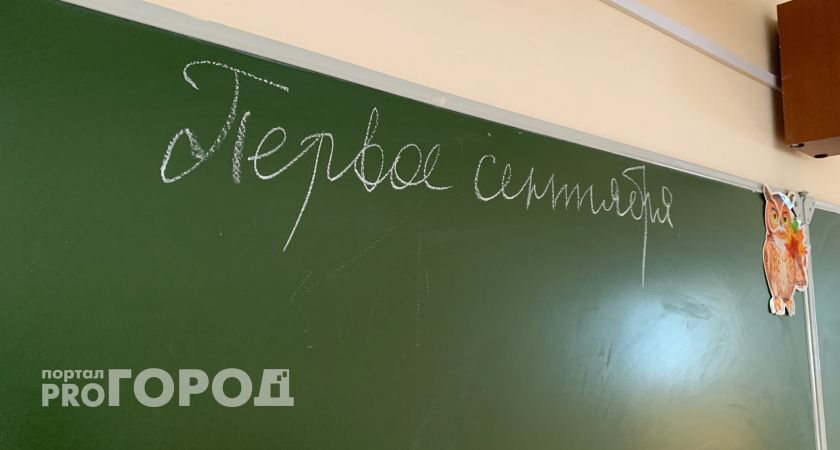 Первое сентября
портал
PROГОРОД